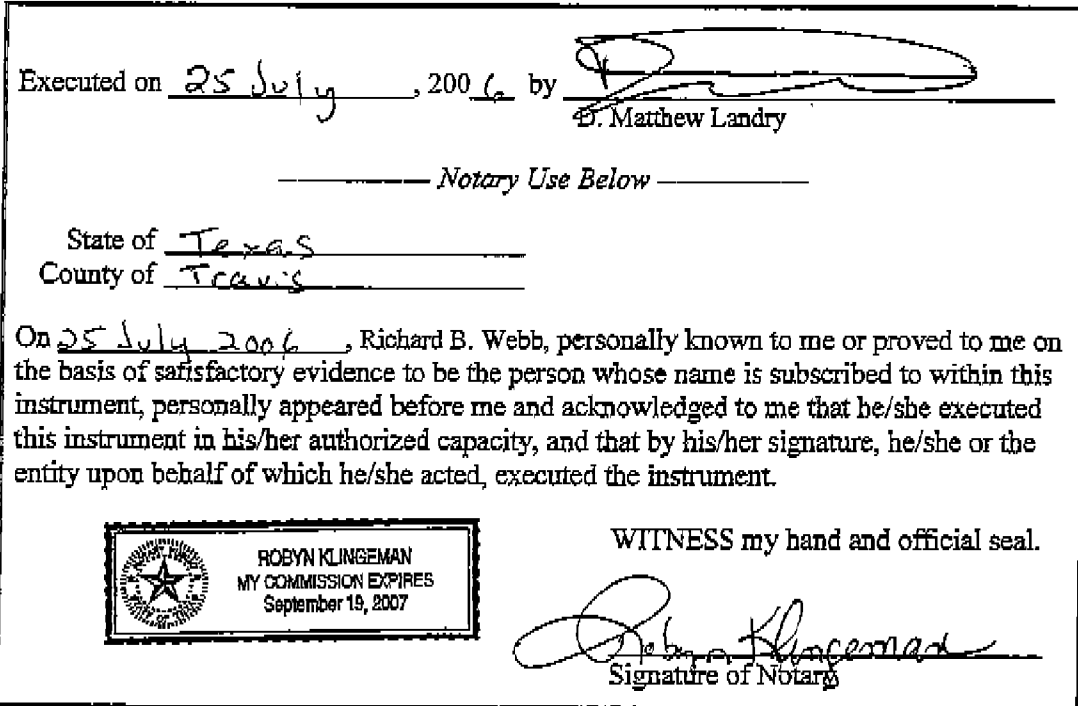 Executed on 25 July, 2006 by
D. Matthew Landry
Notary Use Below
State of Texas
County of Travis
On 25 July 2006, Richard B. Webb, personally known to me or proved to me on
the basis of satisfactory evidence to be the person whose name is subscribed to within this
instrument, personally appeared before me and acknowledged to me that he/she executed
this instrument in his/her authorized capacity, and that by his/her signature, he/she or the
entity upon behalf of which he/she acted, executed the instrument.
ROBYN KLINGEMAN
MY COMMISSION EXPIRES
September 19, 2007
WITNESS my hand and official seal.
Robyn Klingeman
Signature of Notary